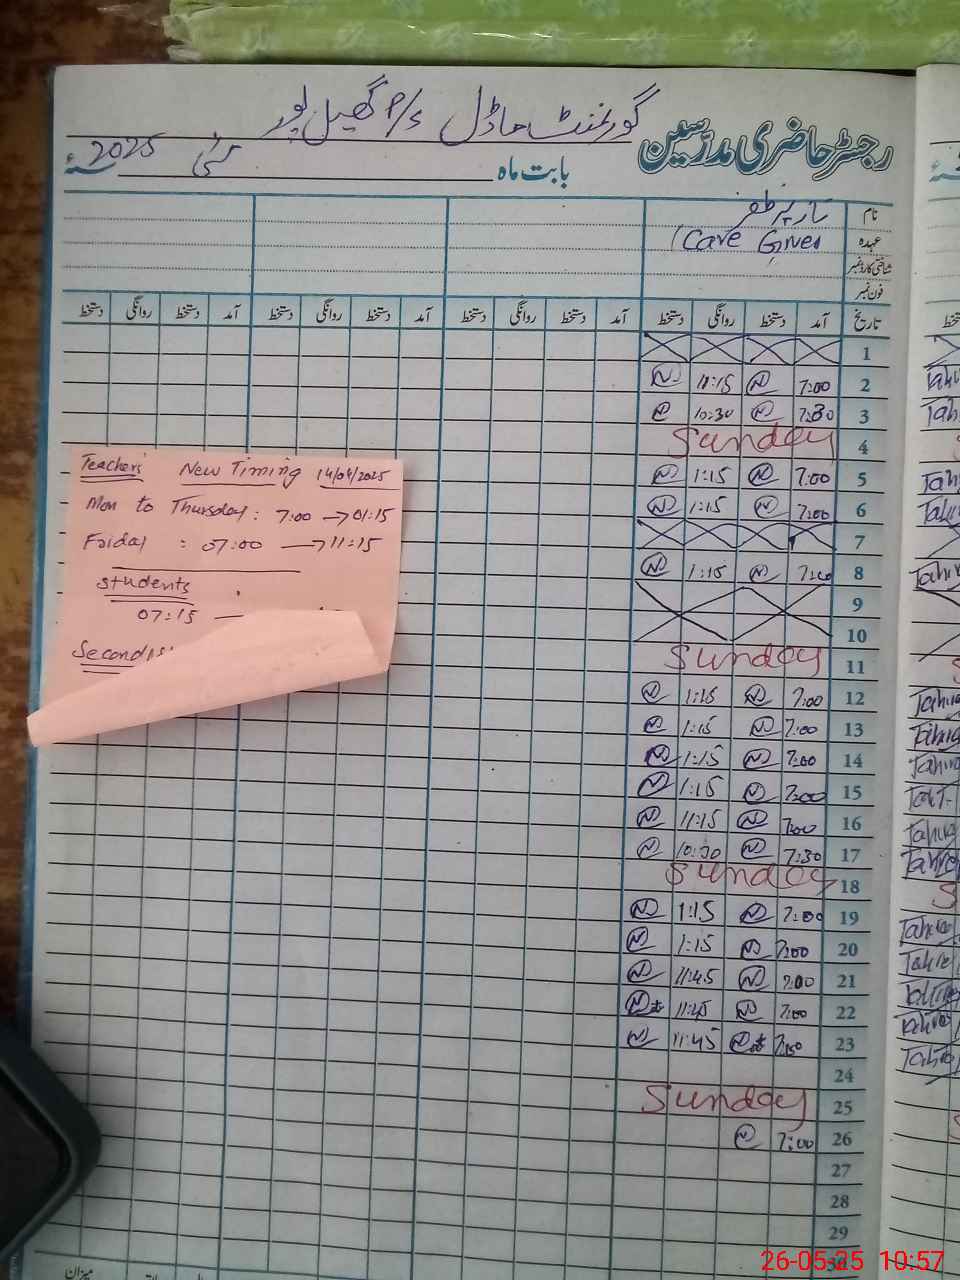 گورنمنٹ ماڈل P/S گھیل پور
رجسٹر حاضری مدرسین
بابت ماہ مئی 2025ء
نام
عہدہ Care Giver
شناختی کارڈ نمبر
فون نمبر
تاریخ آمد دستخط روانگی دستخط آمد دستخط روانگی دستخط آمد دستخط روانگی دستخط
1
2 7:00 11:15
3 7:30 10:30
4 Sunday
5 7:00 1:15
6 7:00 1:15
7
8 7:00 1:15
9
10
11 Sunday
12 7:00 1:15
13 7:00 1:15
14 7:00 1:15
15 7:00 1:15
16 7:00 11:15
17 7:30 10:30
18 Sunday
19 7:00 1:15
20 7:00 1:15
21 7:00 11:45
22 7:00 11:45
23 7:00 11:45
24
25 Sunday
26 7:00
27
28
29
30
میزان
Teachers' New Timing 14/04/2025
Mon to Thursday : 7:00 → 01:15
Friday : 07:00 → 11:15
Students
07:15 —
Tahira
26-05-25 10:57